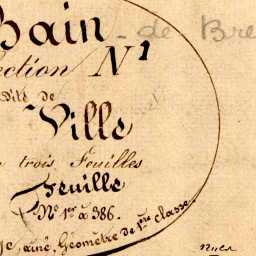 Bain - de Bre
ection N1
dite de
Ville
trois Feuilles
Feuille
Nos 1er à 386.
ainé, Géomètre de 1ère classe